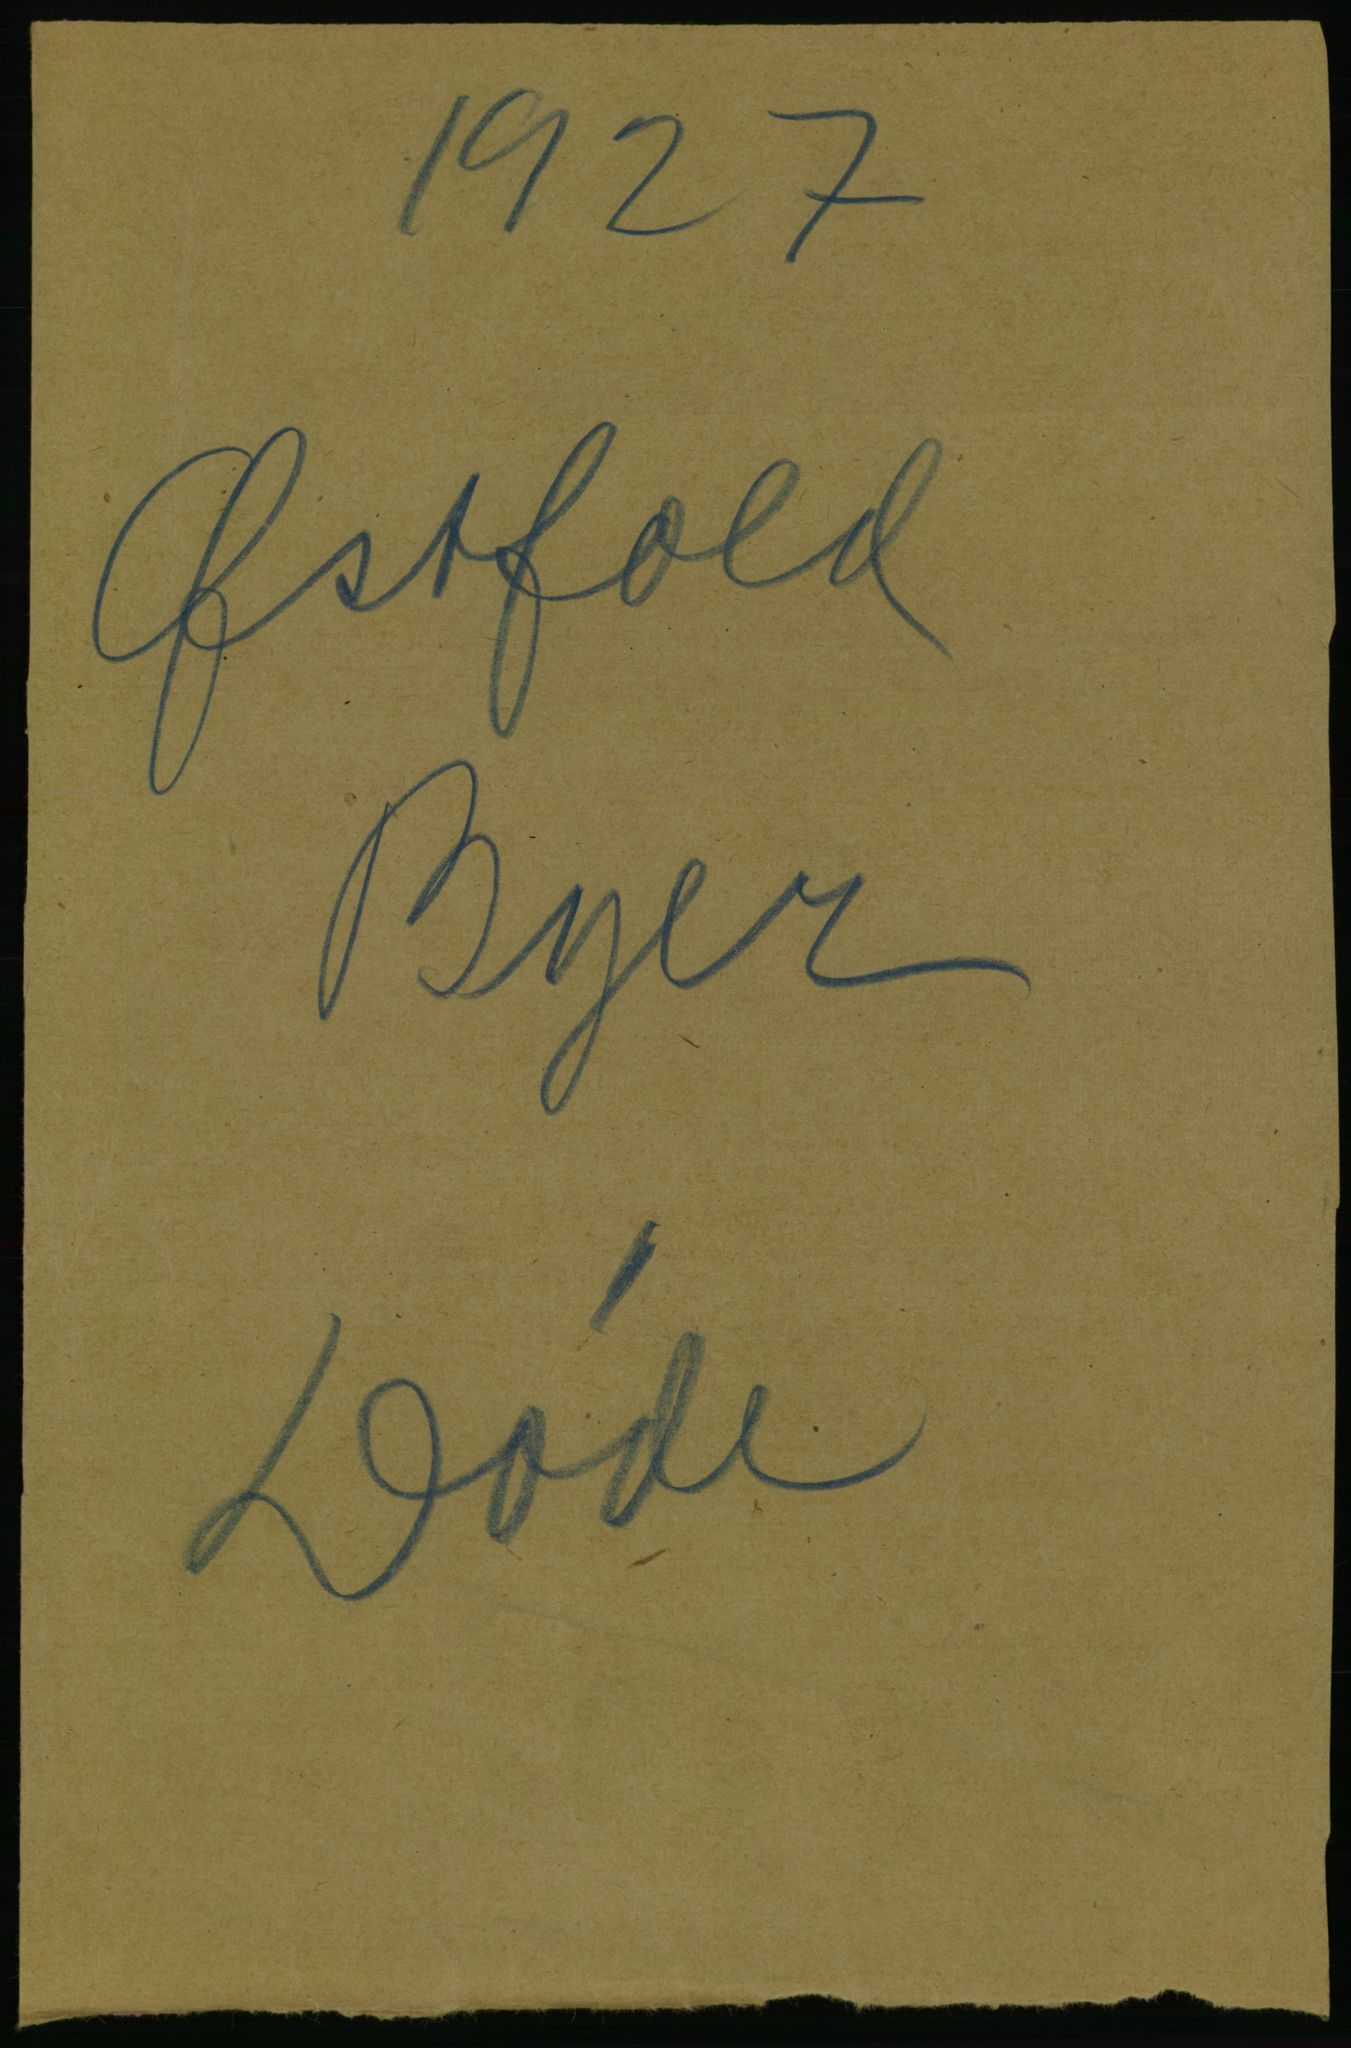 1927
Østfold
Byer
Døde